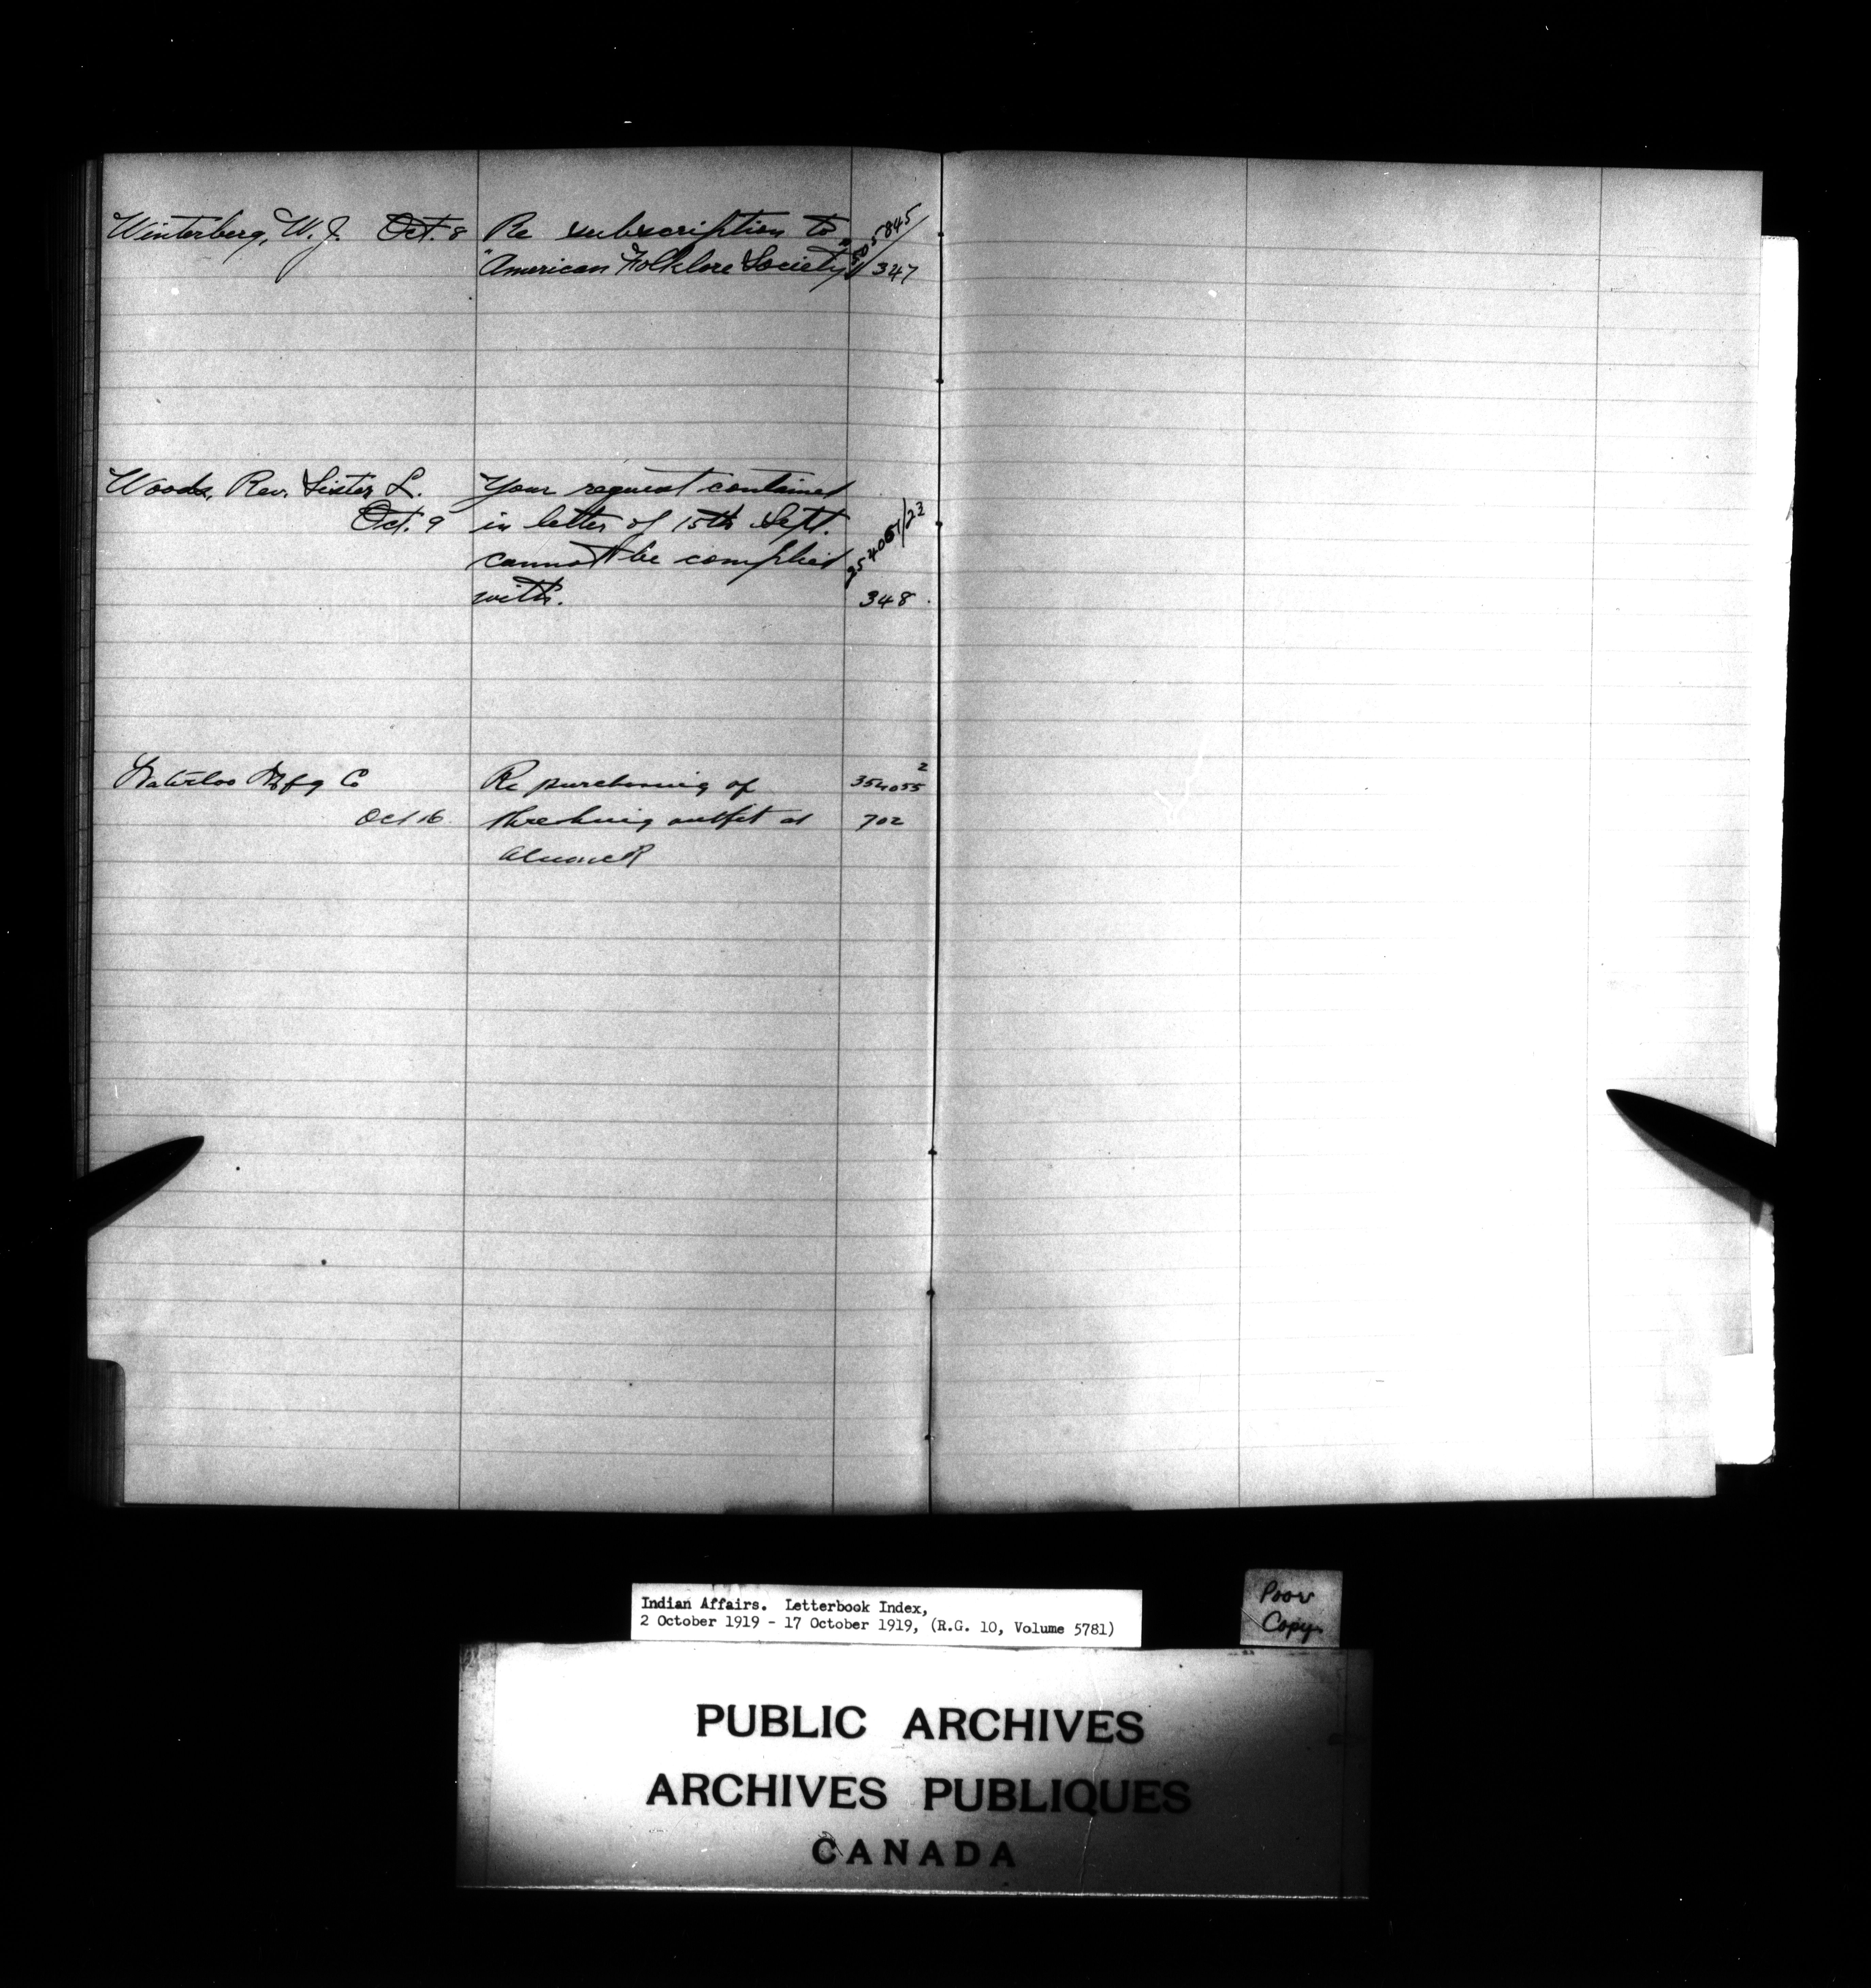 Winterberg, W. J. Oct. 8 Re subscription to 505845/
"American Folklore Society" 347
Woods, Rev. Sister L. Your request contained
Oct. 9 in letter of 15th Sept. /23
cannot be complied
with. 348
Waterloo Mfg Co Re purchasing of 354055 2
Oct 16. threshing outfit at 702
Alnwick
Indian Affairs. Letterbook Index,
2 October 1919 - 17 October 1919, (R.G. 10, Volume 5781)
Poor
Copy
PUBLIC ARCHIVES
ARCHIVES PUBLIQUES
CANADA